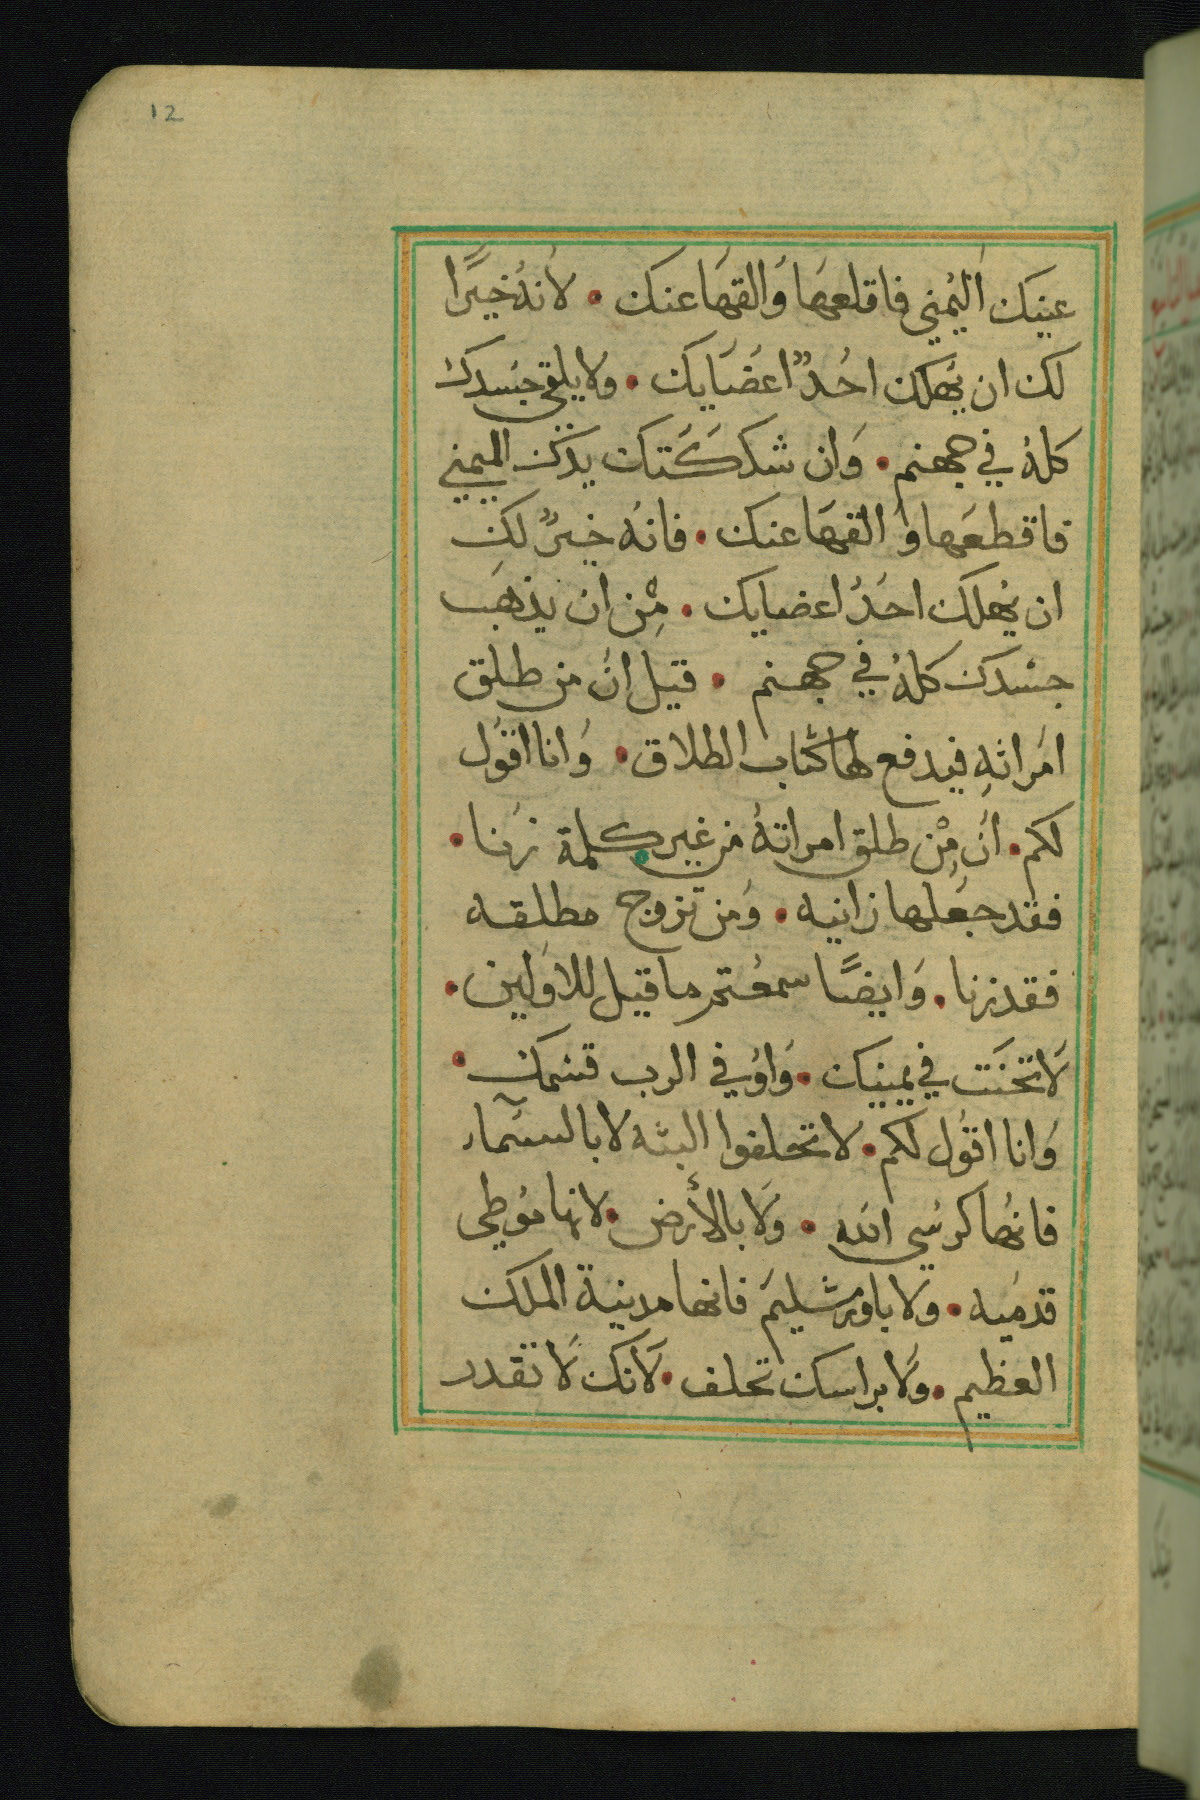 12
عينك اليُمني فاقلعهَا وَالقهَا عنك • لانهُ خيرًا
لك ان يَهلك احُدٌ اعضَايك • ولا يلقي جسدك
كلهُ في جهنم • وَان شككَتك يدك اليميني
فاقطعَها وَالقهَا عنك • فانهُ خيرٌ لك
ان يُهلك احَدُ اعضايك • مِن ان يذهَب
جسَدك كلهُ في جهنم • قيل انَ من طلق
امَراتهِ فيدفع لها كتاب الطلاق • وَانا اقوُل
لكم • انَ مِن طلق امراتهُ من غير كلمة زنا •
فقد جعَلها زانيه • وَمن تزوج مطلقه
فقد زنا • وَايضًا سمعُتم ما قيل للاولين •
لَا تحنَت في يمينك • وَاوُفي الرب قسَمك •
وَانا اقوُل لكم • لا تحلفوا البته لا بالسمآء
فانهُا كرسُي الله • ولَا بالأرض • لانها موُطي
قدميَه • ولَا باورشليمَ فانها مدينة الملك
العظيم • ولَا براسك تحلف • لَانك لَا تقدر